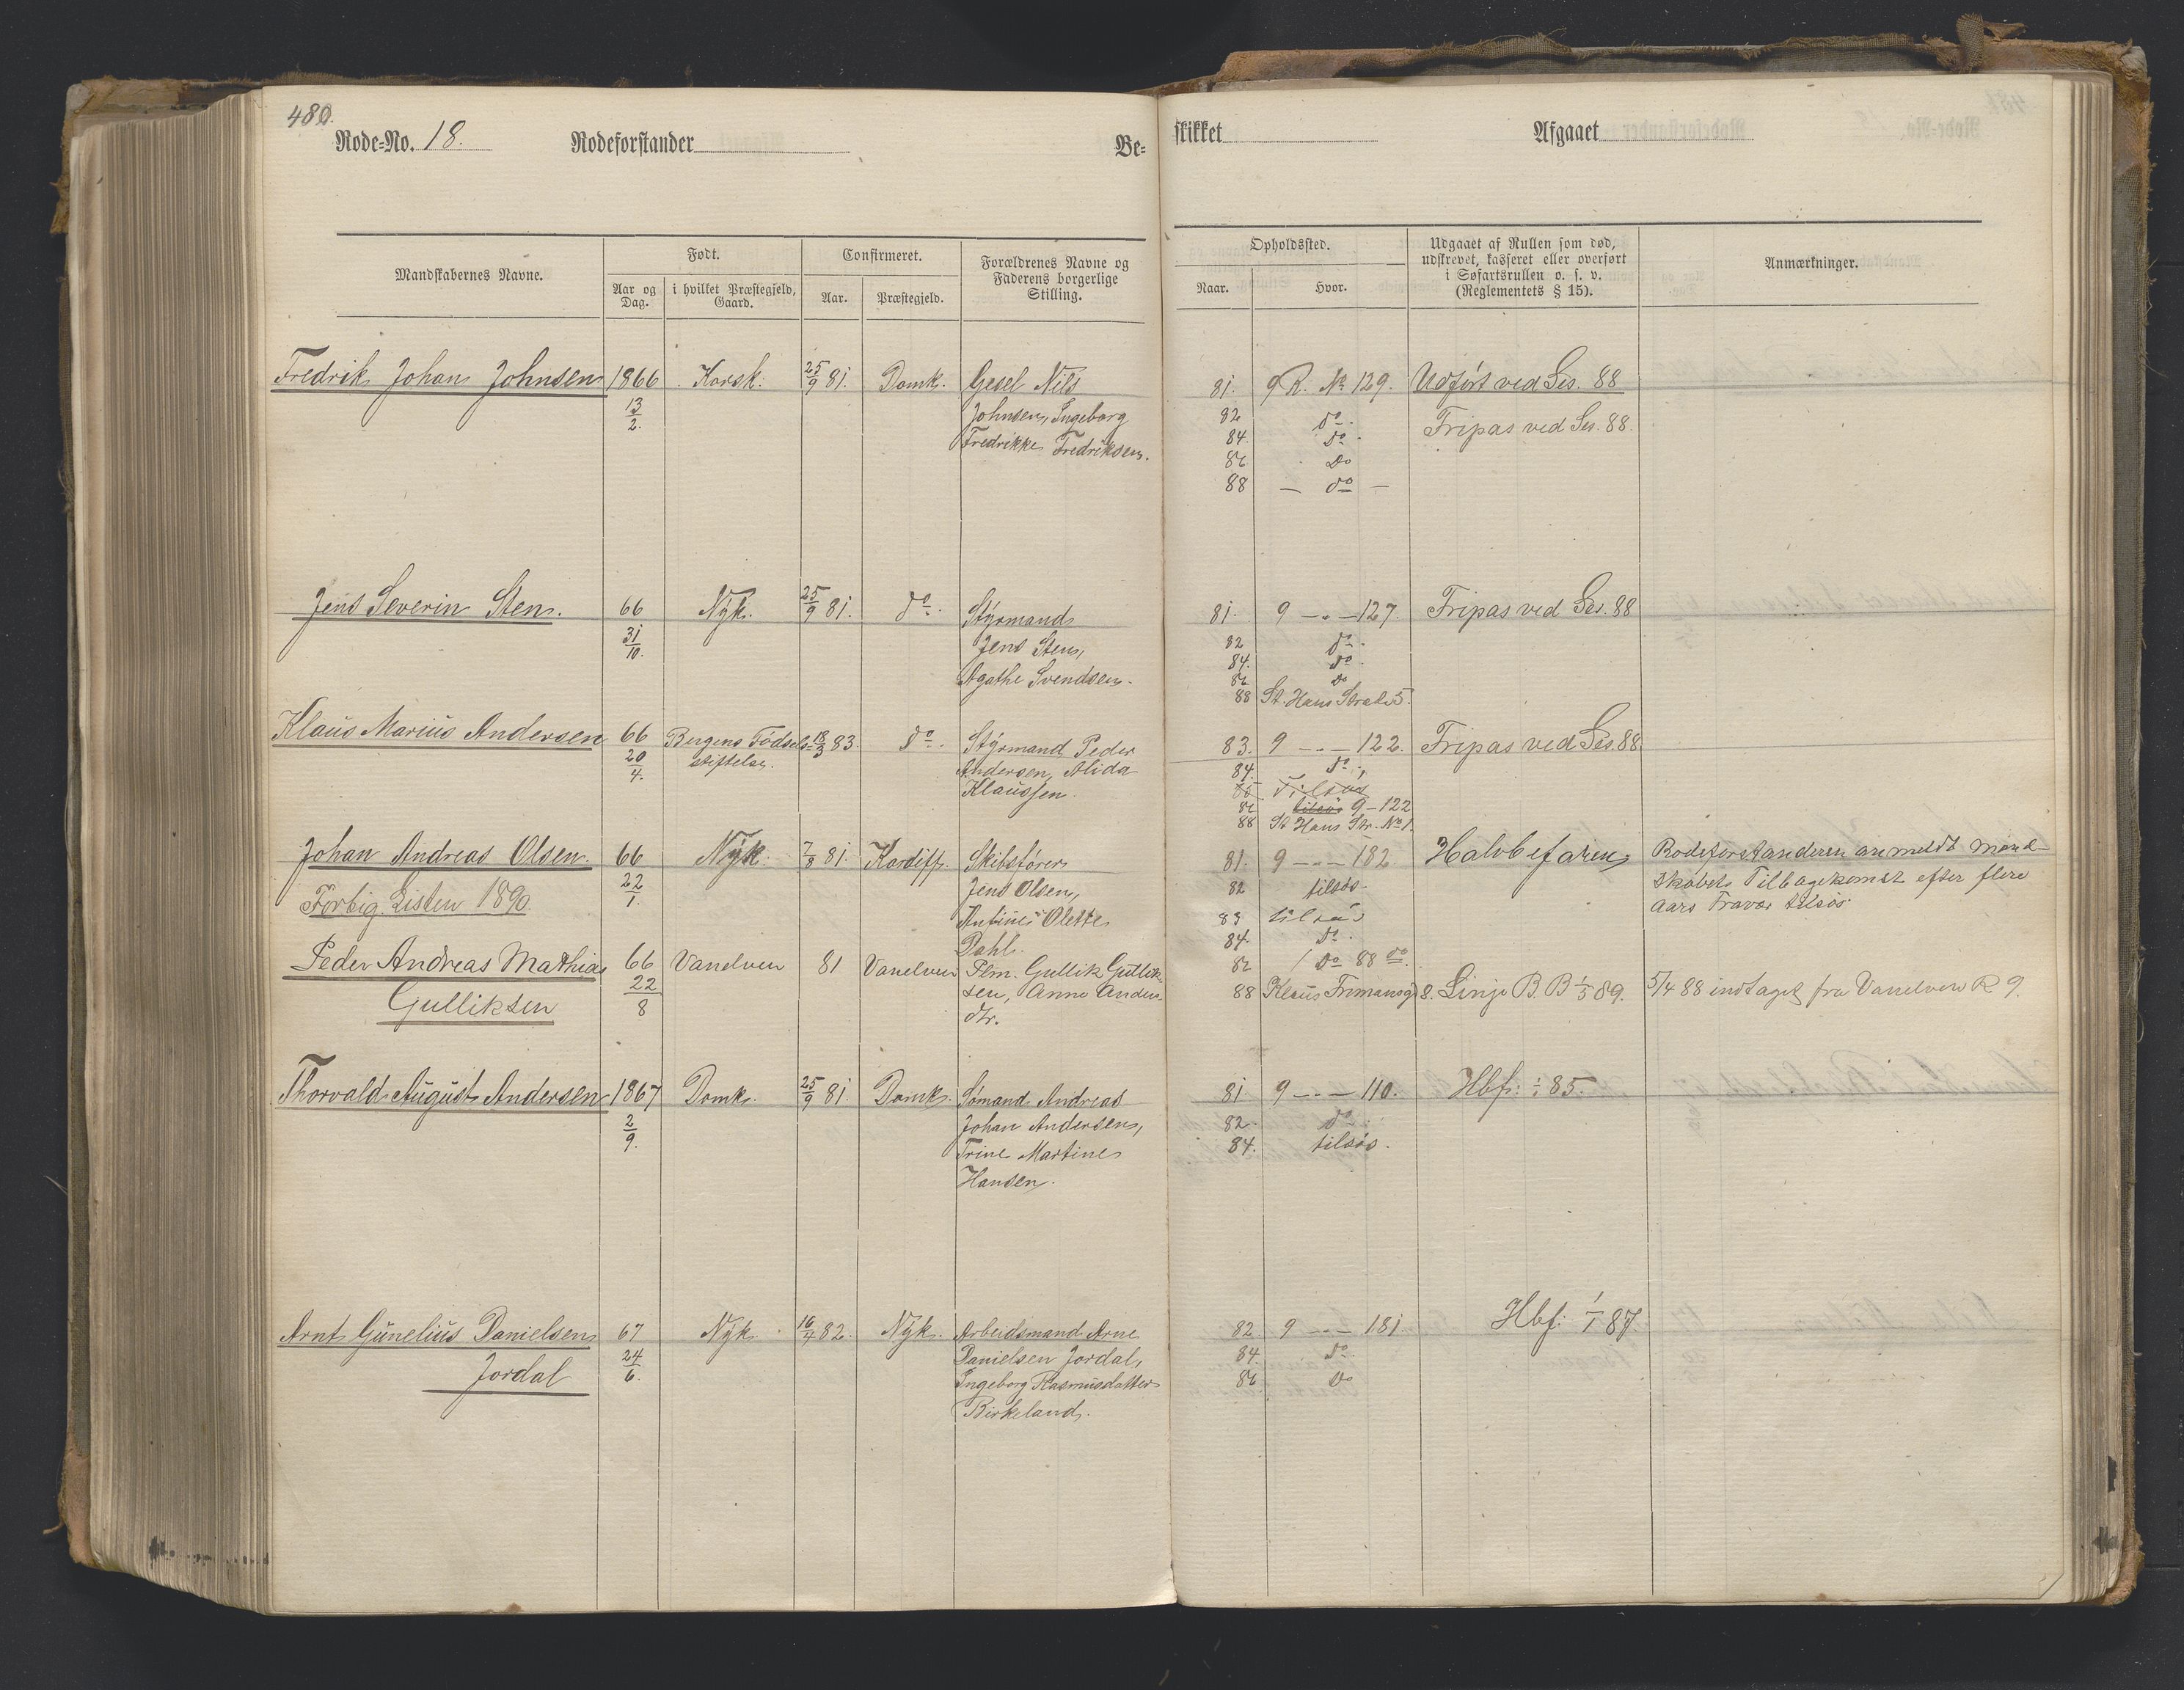 480.
Rode=No. 18. Rodeforstander Be=
skikket Afgaaet
Mandskabernes Navne.
Født.
Aar og Dag.
i hvilket Præstegjeld, Gaard.
Confirmeret.
Aar.
Præstegjeld.
Forældrenes Navne og
Faderens borgerlige
Stilling.
Opholdssted.
Naar.
Hvor.
Udgaaet af Rullen som død,
udskrevet, kasseret eller overført
i Søfartsrullen o. s. v.
(Reglementets § 15).
Anmærkninger.
Fredrik Johan Johnsen 1866 Korsk. 25/9 81. Domk. Gesel Nils
13/2. Johnsen, Ingeborg
Fredrikke Fredriksen.
81. 9 R. No 129. Udført ved Ses. 88
82 do. Fripas ved Ses. 88.
84. do.
86 Do
88 — do —
Jens Severin Sten. 66 Nyk. 25/9 81. do. Styrmand
31/10. Jens Sten,
Agathe Svendsen.
81. 9 - " - 127. Fripas ved Ses. 88
82 do.
84. do.
86 Do
88 St. Hans Stræde 5.
Klaus Marius Andersen 66 Bergens Fødsels= 18/3 83. do. Styrmand Peder
20/4. stiftelse. Andersen, Alida
Klaussen.
83. 9 - " - 122. Fripas ved Ses. 88
84. do.
85 Tilsøs
86 tilsøs 9 - 122
88 St Hans Str. No 1.
Johan Andreas Olsen. 66 Nyk. 7/8 81. Kardiff. Skibsfører
22/1. Jens Olsen,
Forbig. Listen 1890. Olette
Dahl.
81. 9 - " - 182 Halvbefaren Rodeforstanderen anmeldt Mand-
82 tilsøs. skabets Tilbagekomst efter flere
83 tilsøs Aars Fravær tilsøs.
84. do.
86 Do 88 do.
Peder Andreas Mathias 66 Vanelven 81 Vanelven Gullik Gullik-
Gulliksen 22/8 sen, Anne Anders
dtr.
88 Klaus Frimansgd 8. Linje B. B 1/5 89. 5/4 88 indtaget fra Vanelven R 9.
Thorvald August Andersen 1867 Domk. 25/9 81. Domk. Sømand Andreas
2/9. Johan Andersen,
Trine Martine
Hansen.
81. 9 - " - 110. Hbf: 85.
82. do.
84. tilsøs.
Arnt Gunelius Danielsen 67 Nyk. 16/4 82. Nyk. Arbeidsmand Arne
Jordal 24/6. Danielsen Jordal,
Ingeborg Rasmusdatter
Birkeland.
82. 9 - " - 181. Hbf: 1/1 87.
84. do.
86 Do